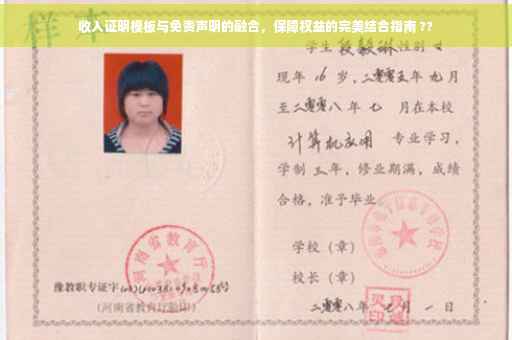 收入证明模板与免责声明的融合，保障权益的完美结合指南 ??
样本
学生 段毅琳 性别 女
现年 16 岁，二零零五年 九月
至二零零八年 七 月在本校
计算机应用 专业学习，
学制 三年，修业期满，成绩
合格，准予毕业
学校（章）
校长（章）
二零零八年 七 月 一 日
河南省教育厅
豫教职专证字
（河南省教育厅验印）